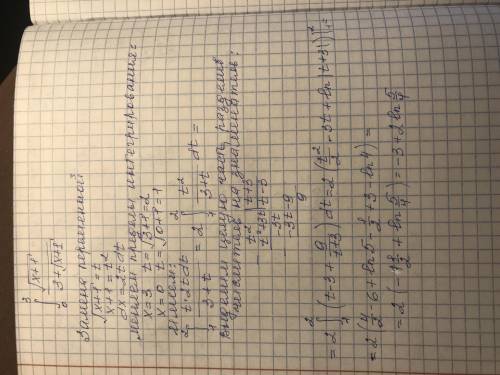 ∫₀³ √(x+1) / (3+√(x+1))
Замена переменной
√(x+1) = t
x+1 = t²
dx = 2t dt
Меняем пределы интегрирования:
x=3 t=√(3+1)=2
x=0 t=√(0+1)=1
Имеем:
∫₁² t·2t dt / (3+t) = 2 ∫₁² t² / (3+t) dt =
Выделим целую часть, разделив
числитель на знаменатель:
t² | t+3
t²+3t | t-3
-3t
-3t-9
9
= 2 ∫₁² (t-3+ 9/(t+3)) dt = 2 (t²/2 - 3t + ln|t+3|) |₁² =
= 2 (4/2 - 6 + ln5 - 1/2 + 3 - ln4) =
= 2 (-1 1/2 + ln 5/4) = -3 + 2 ln 5/4